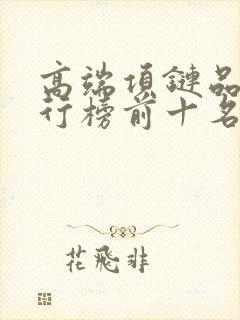 高端項鏈品
行榜前十名
花飛非